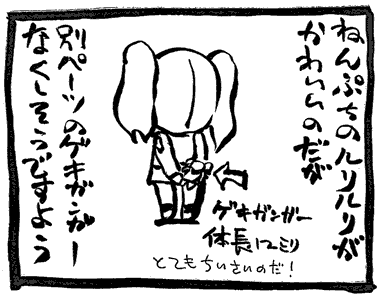 ねんぷちのルリルリが
かわいいのだが
ゲキガンガー
体長12ミリ
とてもちいさいのだ!
別パーツのゲキガンガー
なくしそうですよう